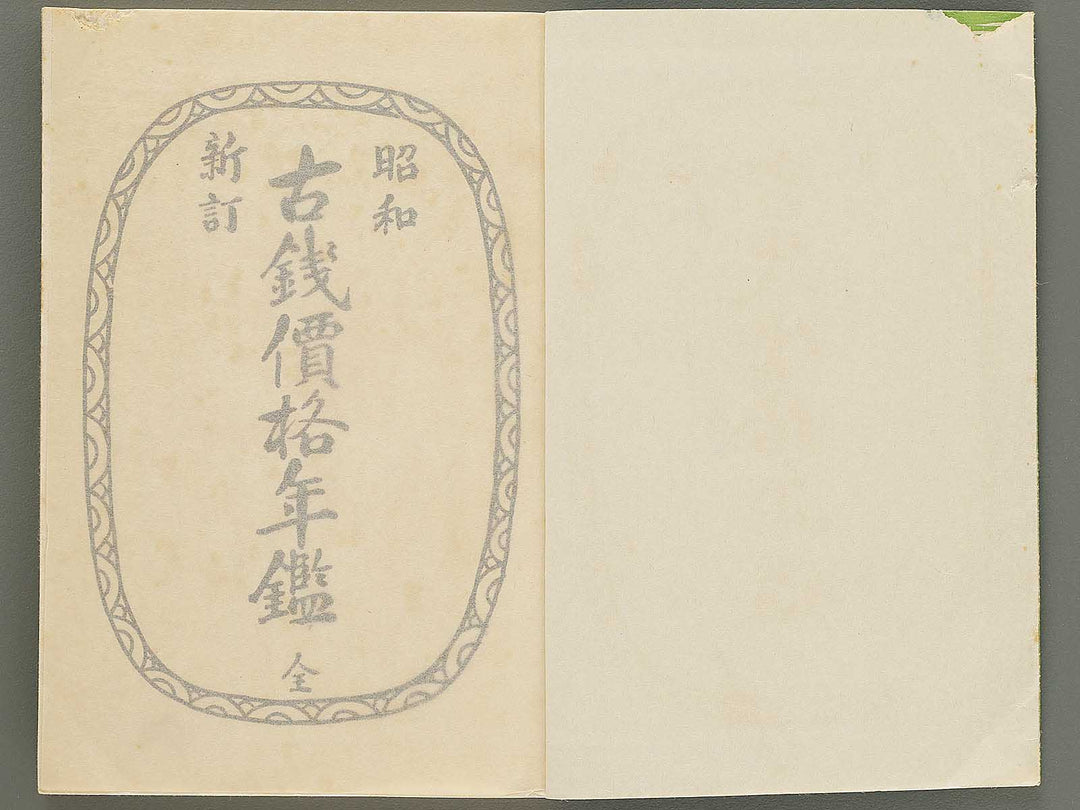 昭和
新訂
古錢價格年鑑
全